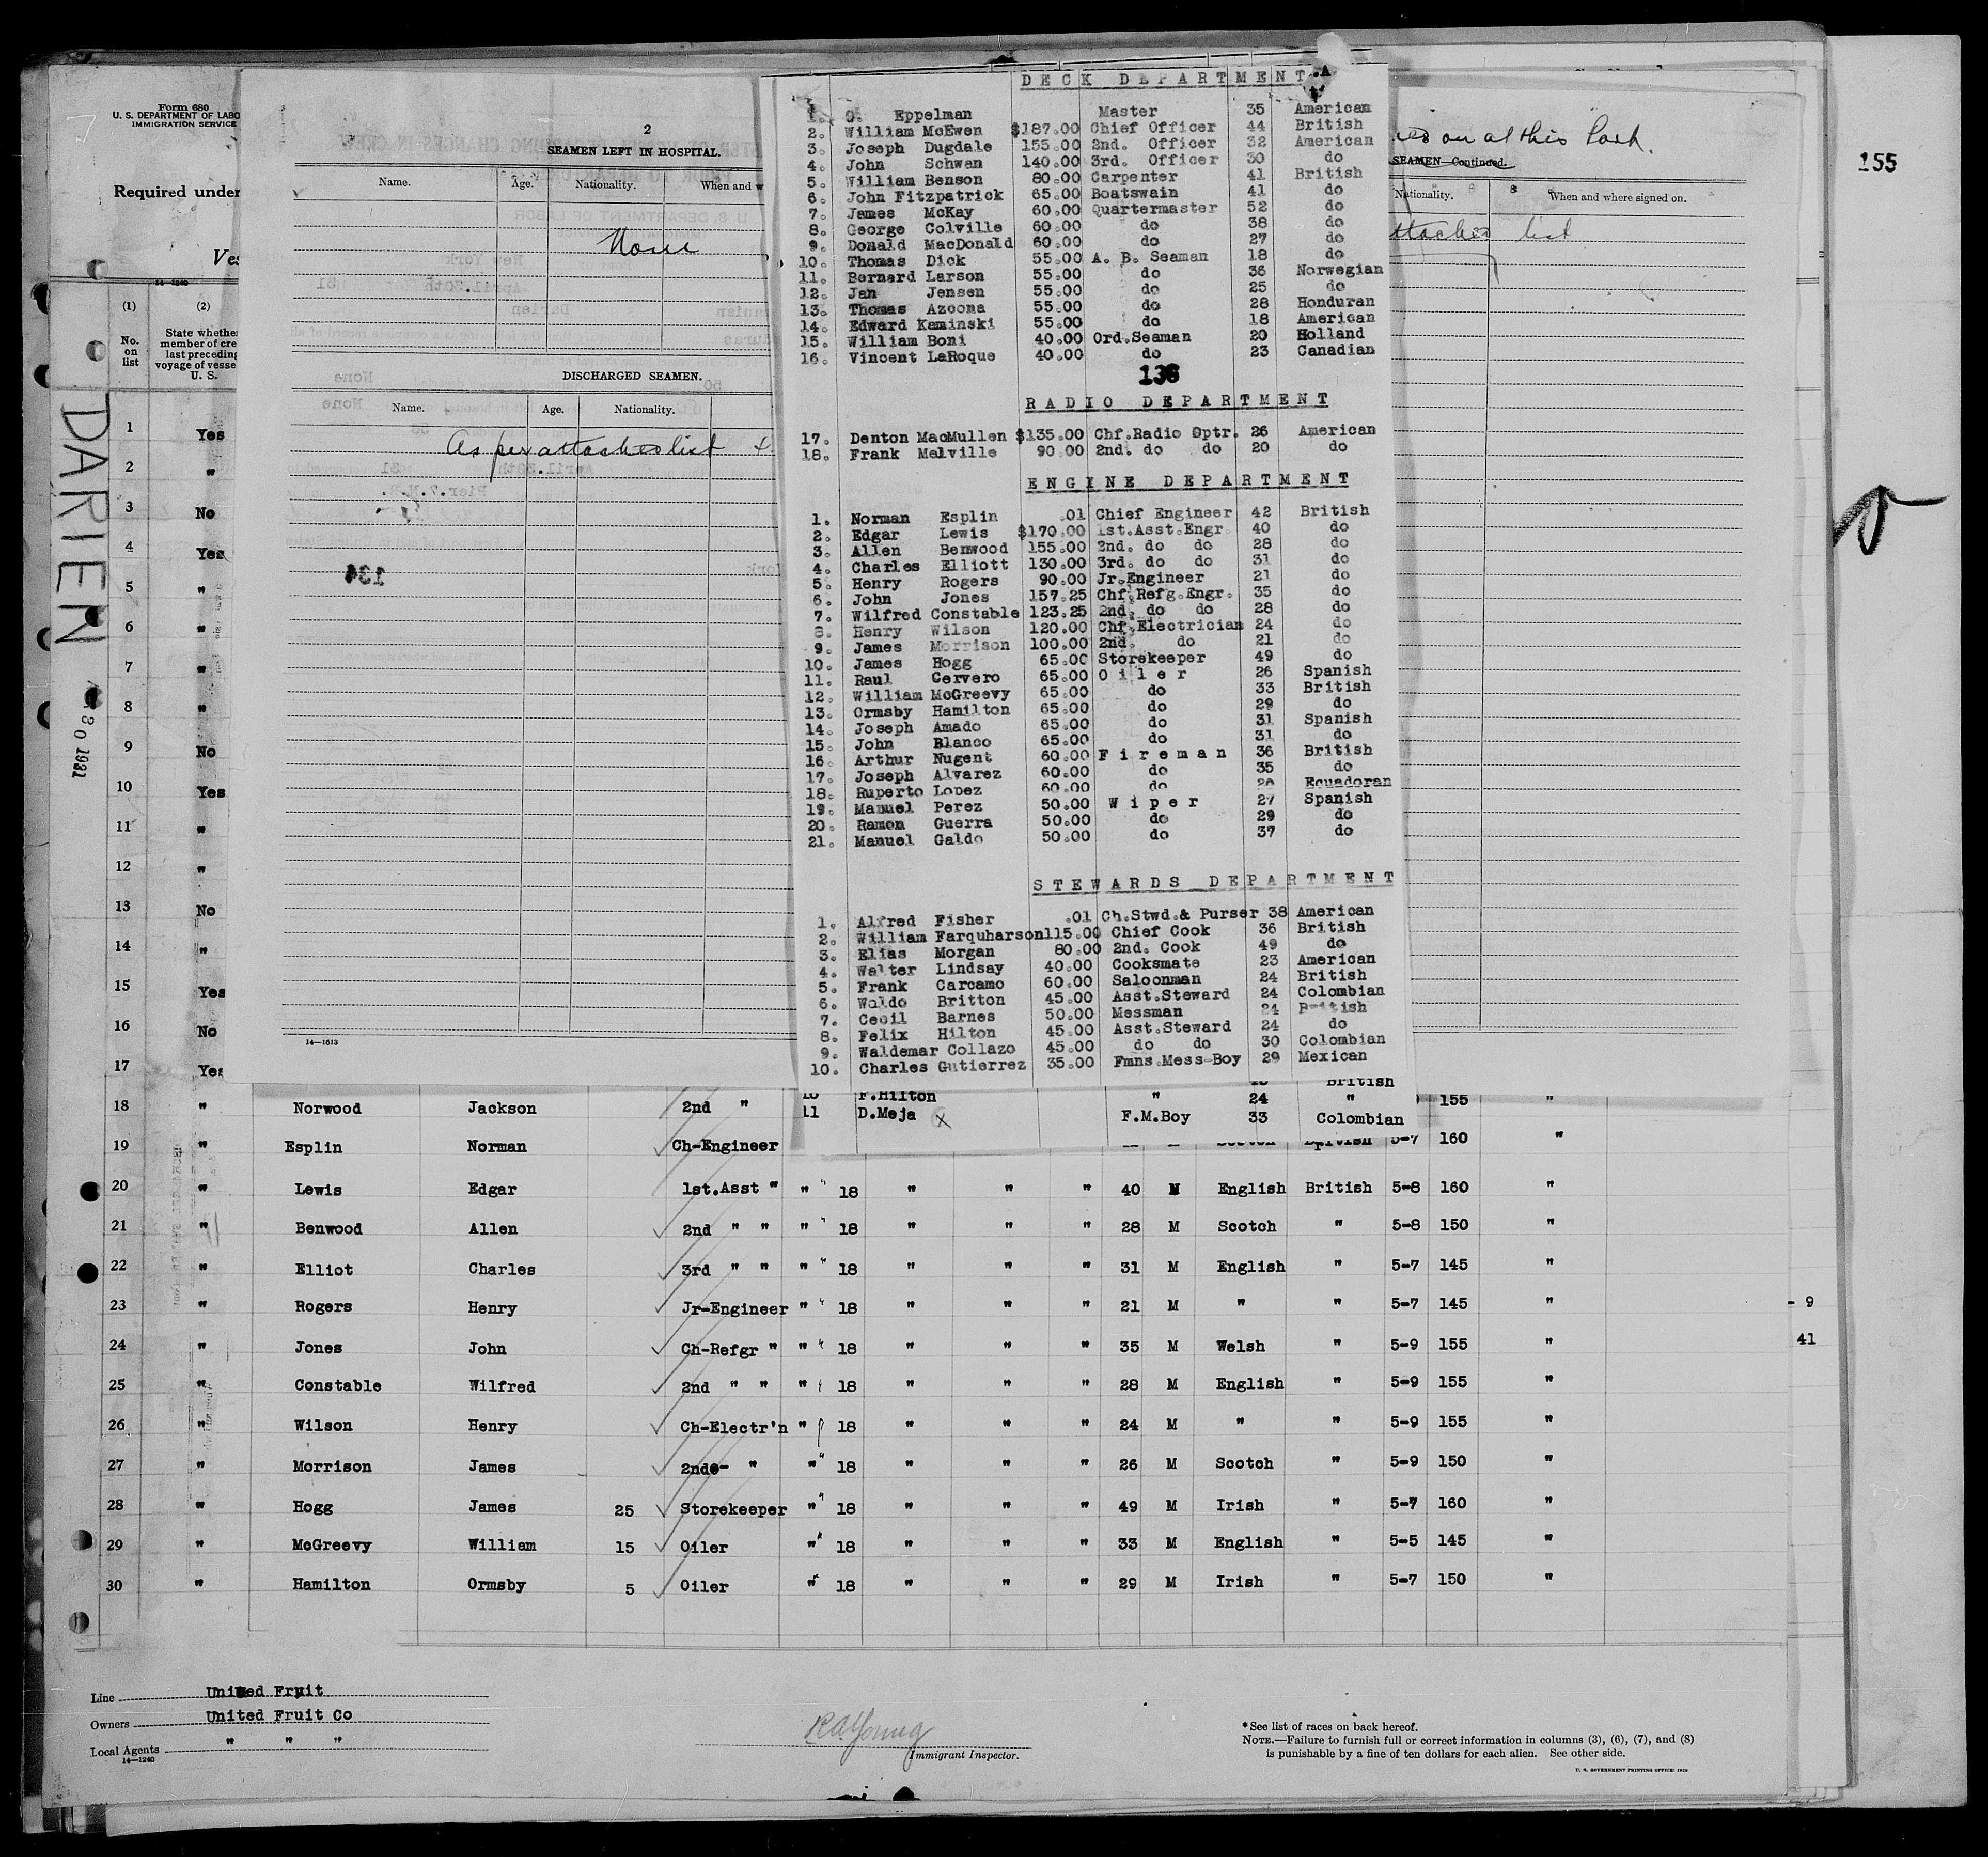 Form 680
U. S. DEPARTMENT OF LABO
IMMIGRATION SERVICE
Required under
Ves
14—1240
(1) (2)
No. on list
State whether member of cre last preceding voyage of vesse U. S.
DARIEN
30 1931
1 Yes
2 "
3 No
4 Yes
5 "
6 "
7 "
8 "
9 No
10 Yes
11 "
12 "
13 No
14 "
15 Yes
16 No
17 Yes
2
SEAMEN LEFT IN HOSPITAL.
Name. Age. Nationality. When and w
None
DISCHARGED SEAMEN.
Name. Age. Nationality.
As per attached list
134
14—1613
DECK DEPARTMENT
1. Eppelman Master 35 American
2. William McEwen $187.00 Chief Officer 44 British
3. Joseph Dugdale 155.00 2nd. Officer 32 American
4. John Schwan 140.00 3rd. Officer 30 do
5. William Benson 80.00 Carpenter 41 British
6. John Fitzpatrick 65.00 Boatswain 41 do
7. James McKay 60.00 Quartermaster 52 do
8. George Colville 60.00 do 38 do
9. Donald MacDonald 60.00 do 27 do
10. Thomas Dick 55.00 A. B. Seaman 18 do
11. Bernard Larson 55.00 do 36 Norwegian
12. Jan Jensen 55.00 do 25 do
13. Thomas Azcona 55.00 do 28 Honduran
14. Edward Kaminski 55.00 do 18 American
15. William Boni 40.00 Ord.Seaman 20 Holland
16. Vincent LaRoque 40.00 do 23 Canadian
136
RADIO DEPARTMENT
17. Denton MacMullen $135.00 Chf.Radio Optr. 26 American
18. Frank Melville 90.00 2nd. do do 20 do
ENGINE DEPARTMENT
1. Norman Esplin .01 Chief Engineer 42 British
2. Edgar Lewis $170.00 1st.Asst.Engr 40 do
3. Allen Benwood 155.00 2nd. do do 28 do
4. Charles Elliott 130.00 3rd. do do 31 do
5. Henry Rogers 90.00 Jr.Engineer 21 do
6. John Jones 157.25 Chf.Refg.Engr. 35 do
7. Wilfred Constable 123.25 2nd. do do 28 do
8. Henry Wilson 120.00 Chf.Electrician 24 do
9. James Morrison 100.00 2nd. do 21 do
10. James Hogg 65.00 Storekeeper 49 do
11. Raul Cervero 65.00 Oiler 26 Spanish
12. William McGreevy 65.00 do 33 British
13. Ormsby Hamilton 65.00 do 29 do
14. Joseph Amado 65.00 do 31 Spanish
15. John Blanco 65.00 do 31 do
16. Arthur Nugent 60.00 Fireman 36 British
17. Joseph Alvarez 60.00 do 35 do
18. Ruperto Lopez 60.00 do Ecuadoran
19. Manuel Perez 50.00 Wiper 27 Spanish
20. Ramon Guerra 50.00 do 29 do
21. Manuel Galdo 50.00 do 37 do
STEWARDS DEPARTMENT
1. Alfred Fisher .01 Ch.Stwd.& Purser 38 American
2. William Farquharson 115.00 Chief Cook 36 British
3. Elias Morgan 80.00 2nd. Cook 49 do
4. Walter Lindsay 40.00 Cooksmate 23 American
5. Frank Carcamo 60.00 Saloonman 24 British
6. Waldo Britton 45.00 Asst.Steward 24 Colombian
7. Cecil Barnes 50.00 Messman 24 British
8. Felix Hilton 45.00 Asst.Steward 24 do
9. Waldemar Collazo 45.00 do do 30 Colombian
10. Charles Gutierrez 35.00 Fmns.Mess-Boy 29 Mexican
British
10 F.Hilton " 24 "
11 D.Meja X F.M.Boy 33 Colombian
on at this Port.
SEAMEN—Continued.
Nationality. When and where signed on.
attached list
155
18 " Norwood Jackson 2nd " 155 "
19 " Esplin Norman Ch-Engineer British 5-7 160 "
20 " Lewis Edgar 1st.Asst " " 18 " " " 40 M English British 5-8 160 "
21 " Benwood Allen 2nd " " " 18 " " " 28 M Scotch " 5-8 150 "
22 " Elliot Charles 3rd " " " 18 " " " 31 M English " 5-7 145 "
23 " Rogers Henry Jr-Engineer " 18 " " " 21 M " " 5-7 145 "
- 9
24 " Jones John Ch-Refgr " " 18 " " " 35 M Welsh " 5-9 155 "
41
25 " Constable Wilfred 2nd " " " 18 " " " 28 M English " 5-9 155 "
26 " Wilson Henry Ch-Electr'n " 18 " " " 24 M " " 5-9 155 "
27 " Morrison James 2nd - " " 18 " " " 26 M Scotch " 5-9 150 "
28 " Hogg James 25 Storekeeper " 18 " " " 49 M Irish " 5-7 160 "
29 " McGreevy William 15 Oiler " 18 " " " 33 M English " 5-5 145 "
30 " Hamilton Ormsby 5 Oiler " 18 " " " 29 M Irish " 5-7 150 "
Line United Fruit
Owners United Fruit Co
Local Agents " " "
14—1240
R A Young
Immigrant Inspector.
*See list of races on back hereof.
NOTE.—Failure to furnish full or correct information in columns (3), (6), (7), and (8)
is punishable by a fine of ten dollars for each alien. See other side.
U. S. GOVERNMENT PRINTING OFFICE: 1929